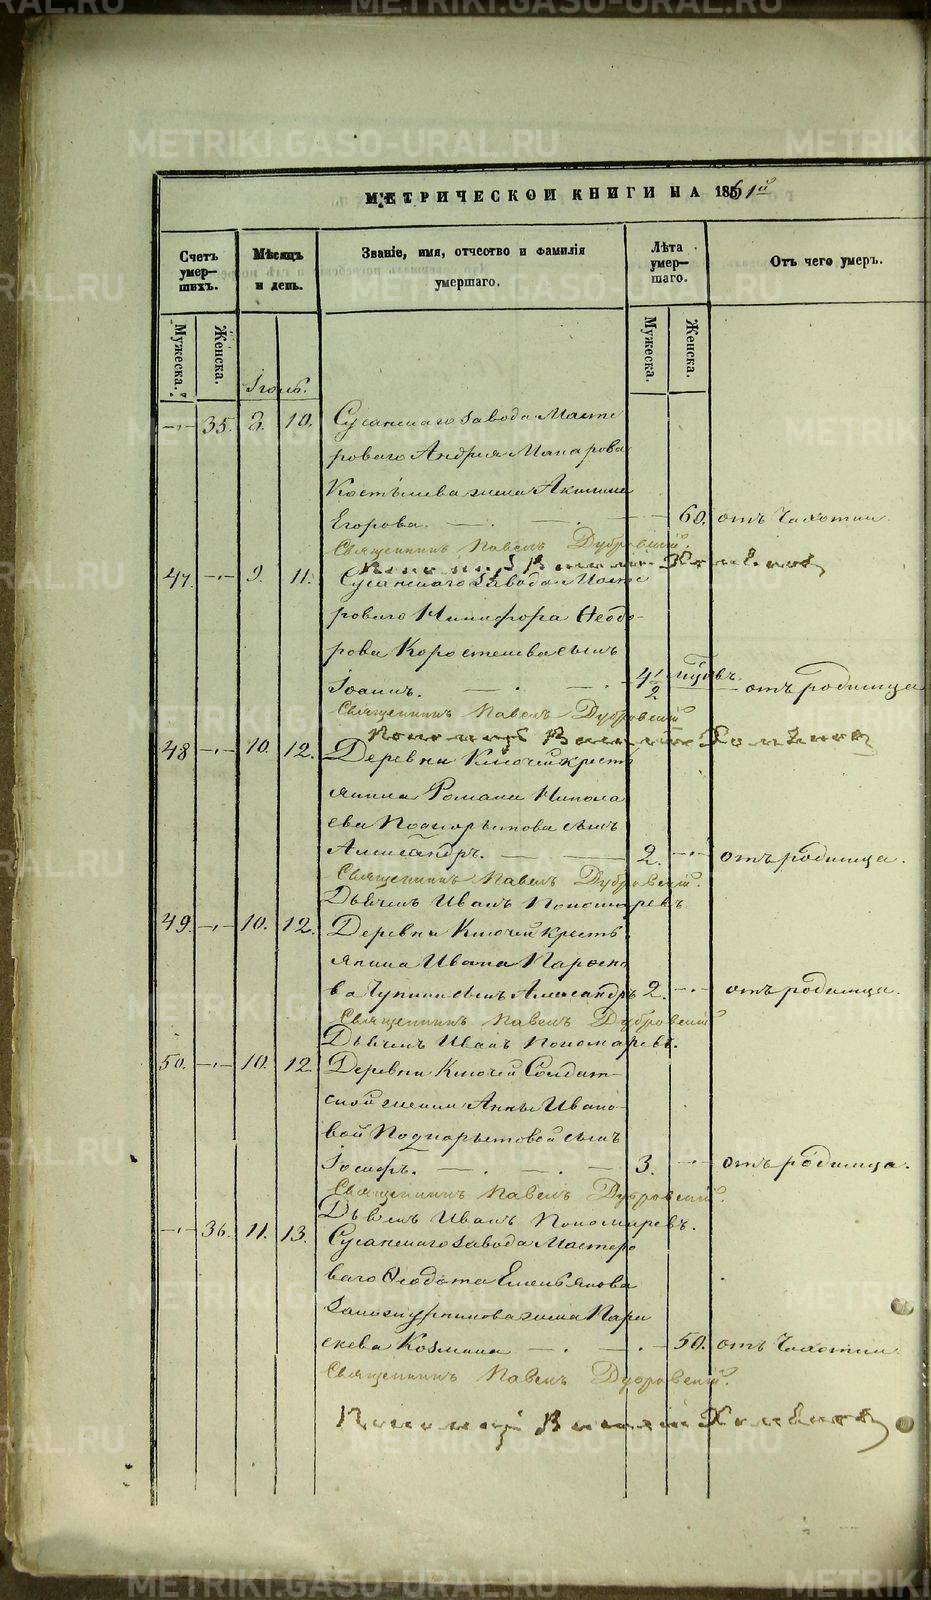 МЕТРИЧЕСКОЙ КНИГИ НА 1861й
Счетъ умер-шихъ.
Мѣсяцъ и день.
Званіе, имя, отчество и фамилія умершаго.
Лѣта умер-шаго.
Отъ чего умеръ.
Мужеска.
Женска.
Мужеска.
Женска.
Іюль.
35. 8. 10. Сусанскаго завода Масте
роваго Андрея Макарова
Костылева жена Акилина
Егорова. 60. отъ Чахотки
Священникъ Павелъ Дубровскій.
Пономарь
47. 9. 11. Сусанскаго завода Масте
роваго Никифора Ѳеодо-
рова Коростелева сынъ
Іоаннъ. 4 1/2 отъ родимца
Священникъ Павелъ Дубровскій
Пономарь
48 10. 12. Деревни Ключей кресть
янина Романа Никола
ева Подкорытова сынъ
Александръ. 2. отъ родимца.
Священникъ Павелъ Дубровскій.
Дьячекъ Иванъ Пономаревъ
49. 10. 12. Деревни Ключей кресть
янина Ивана
ва сынъ Александръ 2. отъ родимца.
Священникъ Павелъ Дубровскій
Дьячекъ Иванъ Пономаревъ.
50. 10. 12 Деревни Ключей Солдат-
ской женки Анны Ивано-
вой Подкорытовой сынъ
Іосифъ. 3. отъ родимца.
Священникъ Павелъ Дубровскій.
Дьячекъ Иванъ Пономаревъ.
36. 11. 13. Сусанскаго завода Мастеро
ваго Ѳеодота Емельянова
жена Пара
скева Козмина 50. отъ Чахотки
Священникъ Павелъ Дубровскій.
Пономарь
METRIKI.GASO-URAL.RU